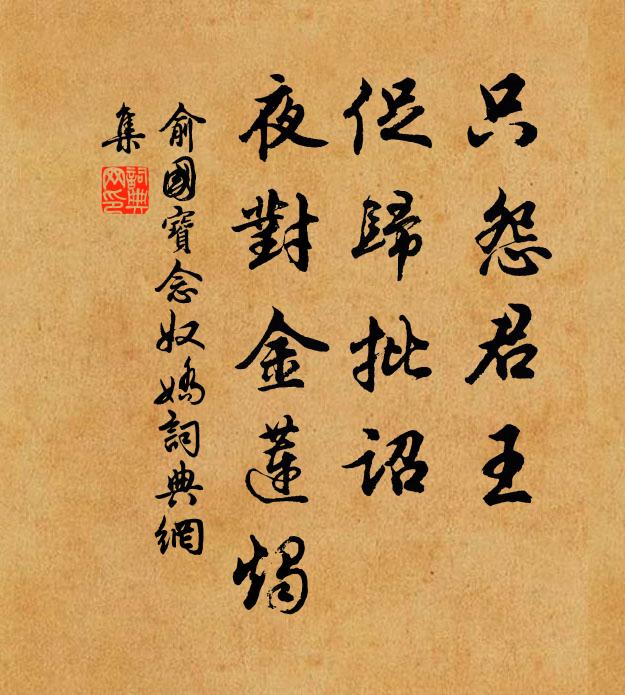 只怨君王
促歸批詔
夜對金蓮燭
俞國寶念奴嬌詞典網
集
詞典網印